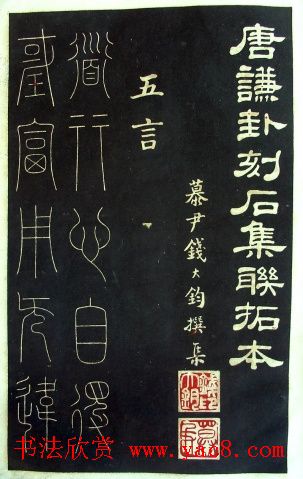 唐謙卦刻石集聯拓本
慕尹錢大鈞撰集
五言
道行心自
富用違
书法欣赏 www.yac8.com